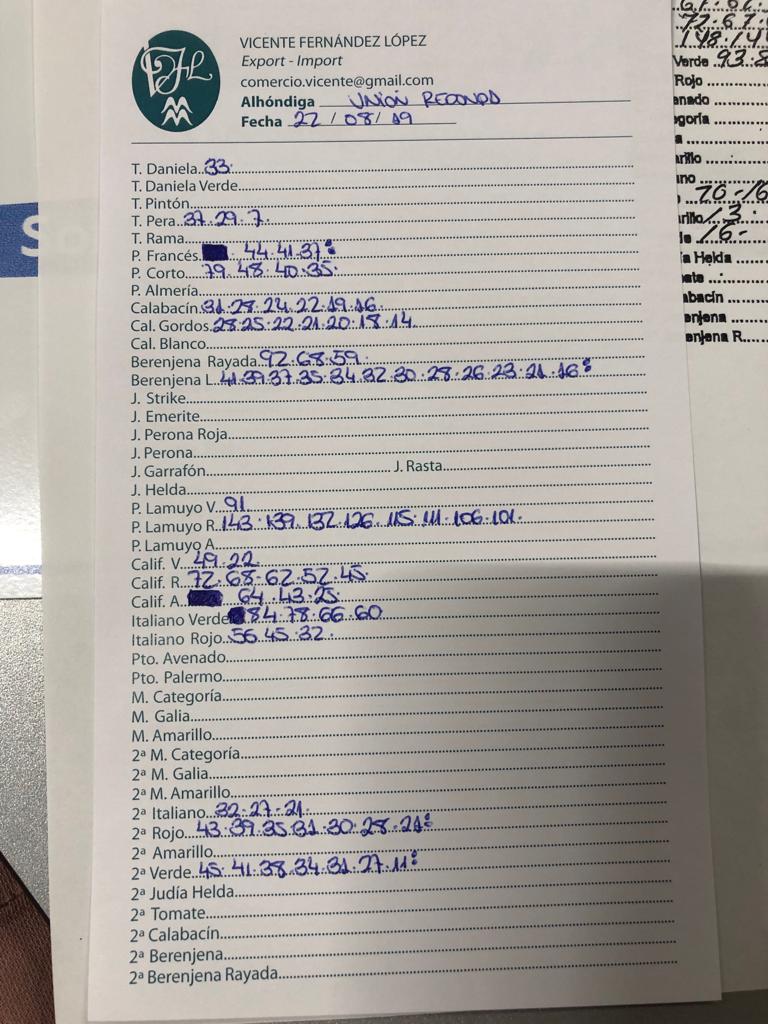 VICENTE FERNÁNDEZ LÓPEZ
Export - Import
comercio.vicente@gmail.com
Alhóndiga UNION
Fecha 22/08/19
T. Daniela..33.
T. Daniela Verde
T. Pintón
T. Pera..37.29.7.
T. Rama
P. Francés 44.41.37:
P. Corto..79.48.40.35.
P. Almería
Calabacín.31.28.24.22.19.16.
Cal. Gordos.28.25.22.21.20.18.14.
Cal. Blanco
Berenjena Rayada.92.68.59.
Berenjena L..41.39.37.35.34.32.30.28.26.23.21.16:
J. Strike
J. Emerite
J. Perona Roja
J. Perona
J. Garrafón J. Rasta
J. Helda
P. Lamuyo V..91.
P. Lamuyo R..143.139.132.126.115.111.106.101.
P. Lamuyo A
Calif. V..49.22
Calif. R..72.68-62.52.45
Calif. A. 64.43.25
Italiano Verde 84.78.66.60
Italiano Rojo..56.45.32.
Pto. Avenado
Pto. Palermo
M. Categoría
M. Galia
M. Amarillo
2ª M. Categoría
2ª M. Galia
2ª M. Amarillo
2ª Italiano..32-27-21.
2ª Rojo..43.39.35.31.30.28.21:
2ª Amarillo
2ª Verde..45.41.38.34.31.27.11:
2ª Judía Helda
2ª Tomate
2ª Calabacín
2ª Berenjena
2ª Berenjena Rayada
Verde
Rojo